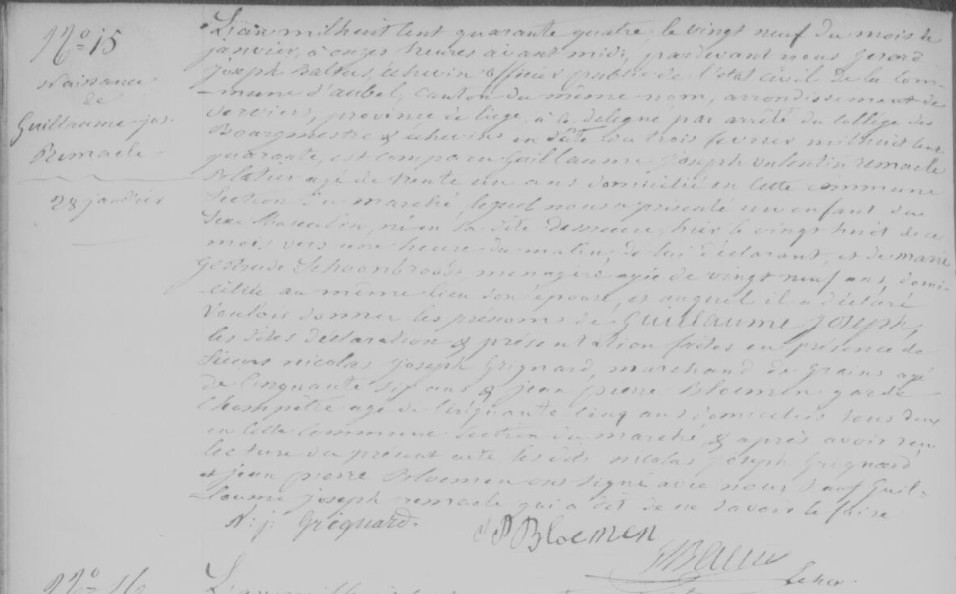 N° 15
Naissance
de
Guillaume-jos.
Remacle
28 janvier
L'an mil huit cent quarante quatre, le vingt neuf du mois de
janvier, à onze heures avant midi, pardevant nous Gerard
joseph Baltus, échevin officier public de l'état civil de la com-
-mune d'aubel, canton du même nom, arrondissement de
verviers, province de liège, à ce delegué par arrêté du collège des
Bourgmestre & échevins en date du trois fevrier mil huit cent
quarante, est comparu Guillaume joseph valentin remacle
agé de trente un ans domicilié en cette commune
section du marché, lequel nous a présenté un enfant du
sexe Masculin, né en sa dite demeure, hier le vingt huit de ce
mois vers une heure du matin, de lui déclarant, et de marie
Gertrude Schoonbroodt, menagère agée de vingt neuf ans, domi-
ciliée au même lieu son épouse, et auquel il a déclaré
vouloir donner les prenoms de Guillaume Joseph,
les dites déclaration & présentation faites en présence de
sieurs nicolas joseph Grignard, marchand de grains agé
de cinquante six ans & jean pierre Bloemen garde
champêtre agé de cinquante cinq ans domiciliés tous deux
en cette commune section du marché, & après avoir
lecture du présent acte les dits nicolas joseph Grignard
et jean pierre Bloemen ont signé avec nous sauf Guil-
-laume joseph remacle qui a dit de ne savoir le faire
N: j: Grignard.
J P Bloemen
N° 16
L'an mil huit